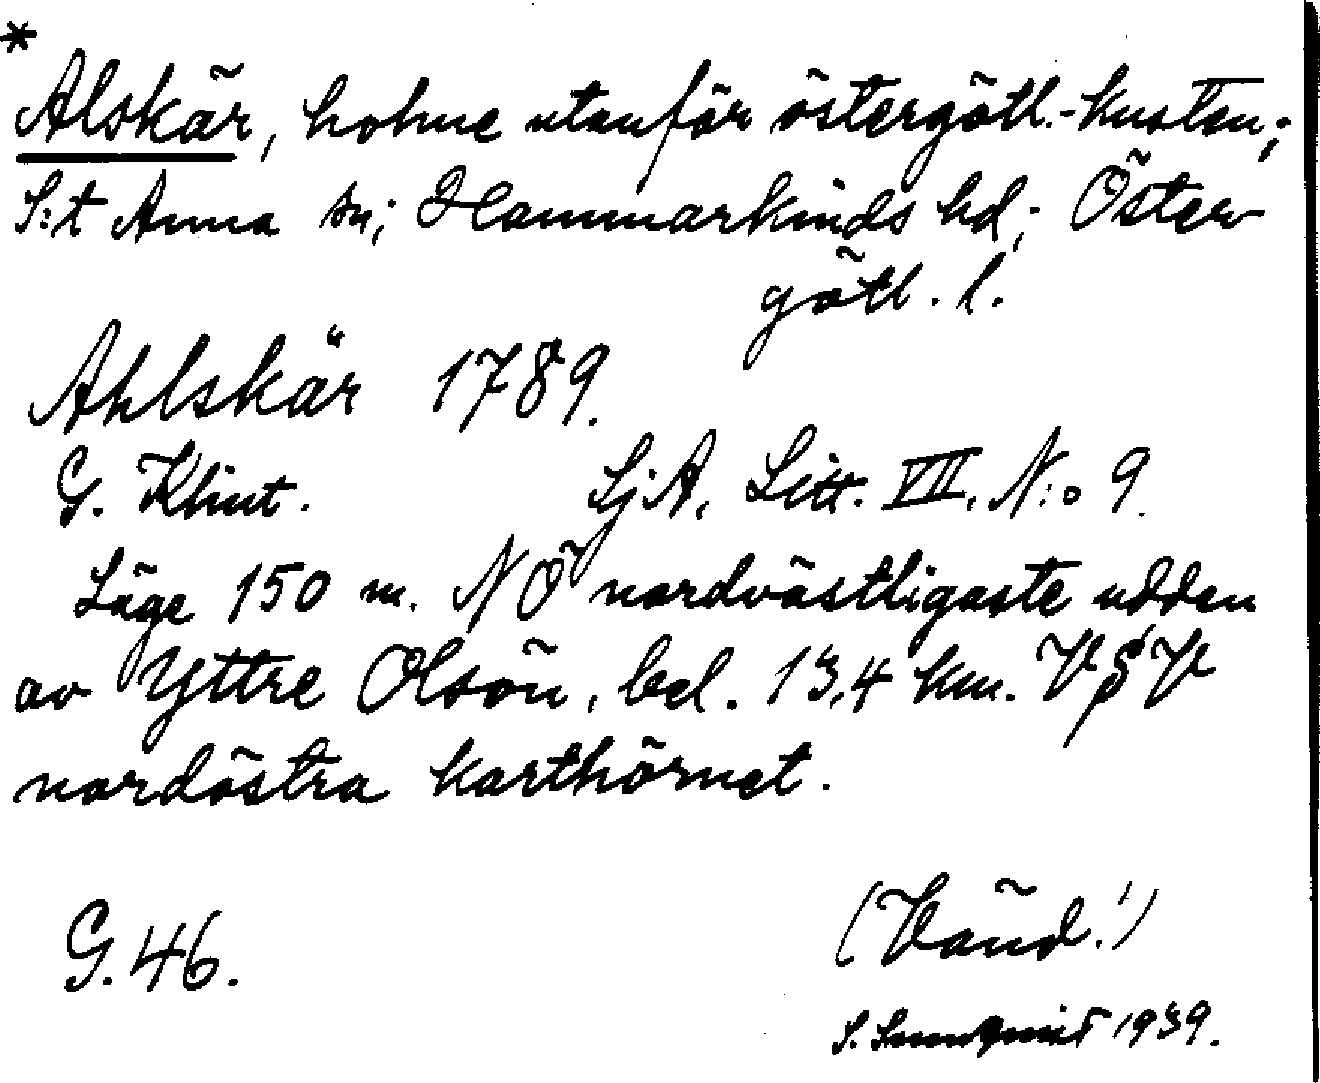 *
Alskär, holme utanför östergötl.-kusten;
S:t Anna sn; Hammarkinds hd; Öster
götl. l.
Ahlskär 1789.
G. Klint. SjA, Litt. VII, N:o 9.
Läge 150 m. NO nordvästligaste udden
av Yttre Olsön, bel. 13,4 km. VSV
nordöstra karthörnet.
G. 46. (Vänd!)
S. 1939.